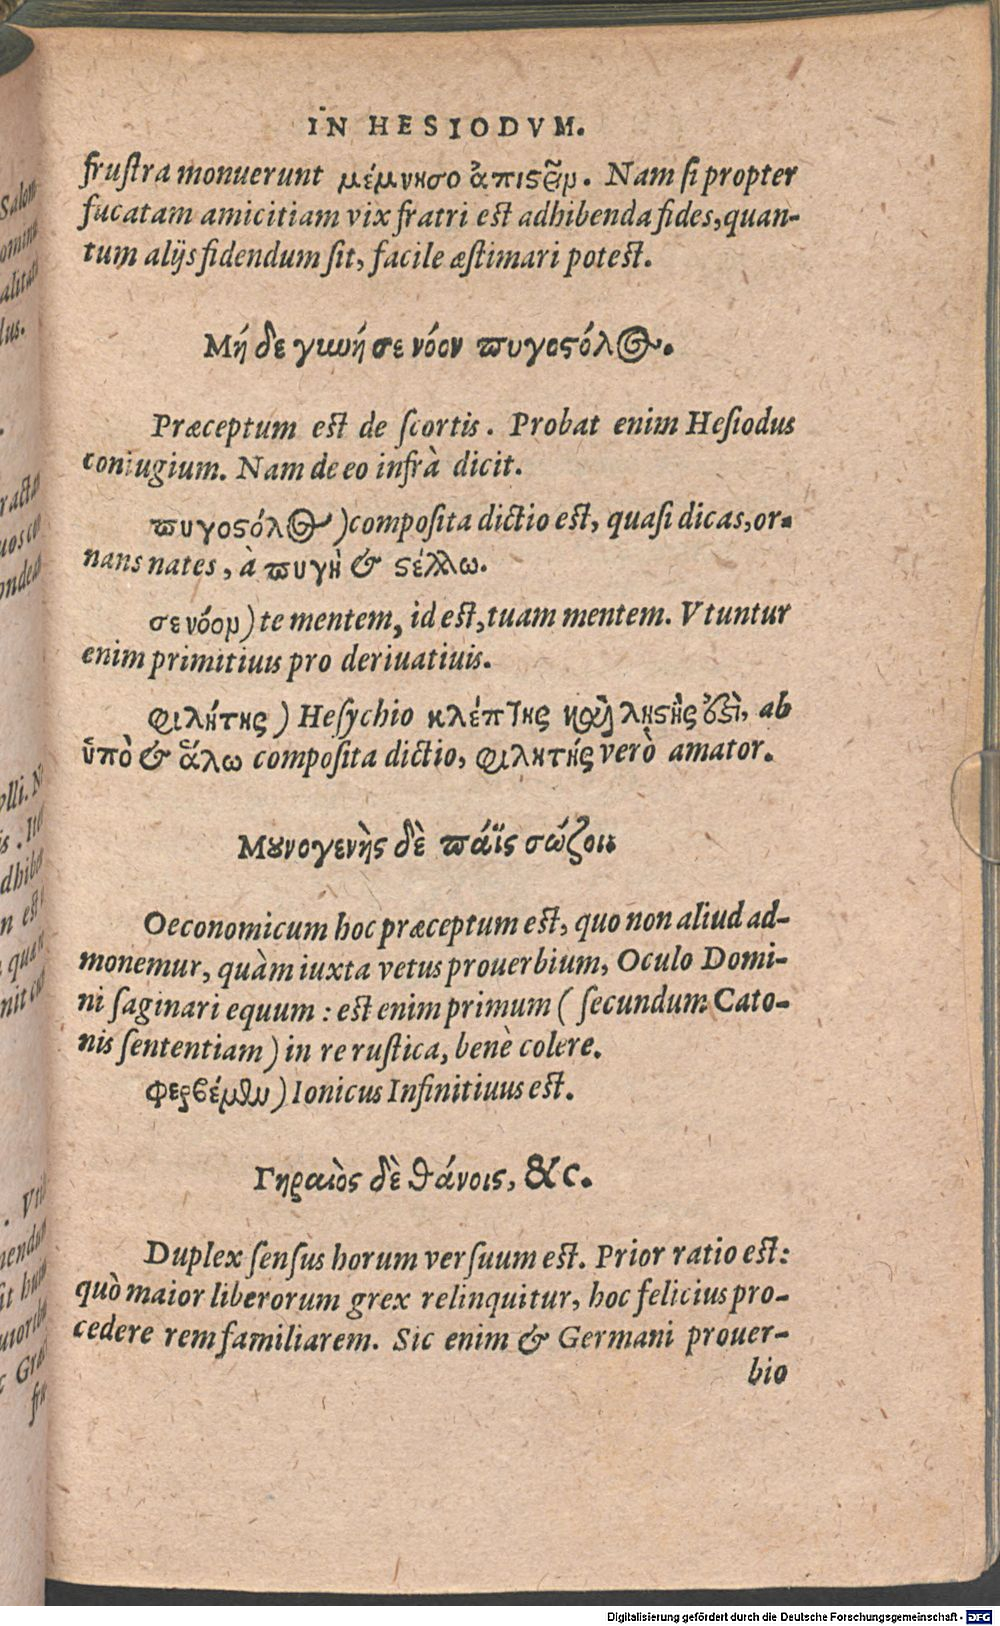 IN HESIODVM.
frustra monuerunt μέμνησο ἀπιστεῖν. Nam si propter
fucatam amicitiam vix fratri est adhibenda fides, quan-
tum alijs fidendum sit, facile æstimari potest.
Μή δε γυνή σε νόον πυγοστόλος.
Præceptum est de scortis. Probat enim Hesiodus
coniugium. Nam de eo infrà dicit.
πυγοστόλος) composita dictio est, quasi dicas, or-
nans nates, à πυγὴ & στέλλω.
σε νόον) te mentem, id est, tuam mentem. Vtuntur
enim primitiuis pro deriuatiuis.
φιλήτης) Hesychio κλέπτης καὶ ληστὴς, ab
ὑπὸ & ἅλω composita dictio, φιλητής verò amator.
Μουνογενὴς δὲ πάϊς σώζοι
Oeconomicum hoc præceptum est, quo non aliud ad-
monemur, quàm iuxta vetus prouerbium, Oculo Domi-
ni saginari equum : est enim primum ( secundum Cato-
nis sententiam) in re rustica, benè colere.
φερβέμεν) Ionicus Infinitiuus est.
Γηραιὸς δὲ θάνοις, &c.
Duplex sensus horum versuum est. Prior ratio est:
quò maior liberorum grex relinquitur, hoc felicius pro-
cedere rem familiarem. Sic enim & Germani prouer-
bio
Salom
omina
alitati
lus.
ractan
uos co
ondea
olli. N
s . Ite
dhiben
n est
quan
nit
. Vti
endu
sit hum
utoribu
c Græ
fru
Digitalisierung gefördert durch die Deutsche Forschungsgemeinschaft - DFG